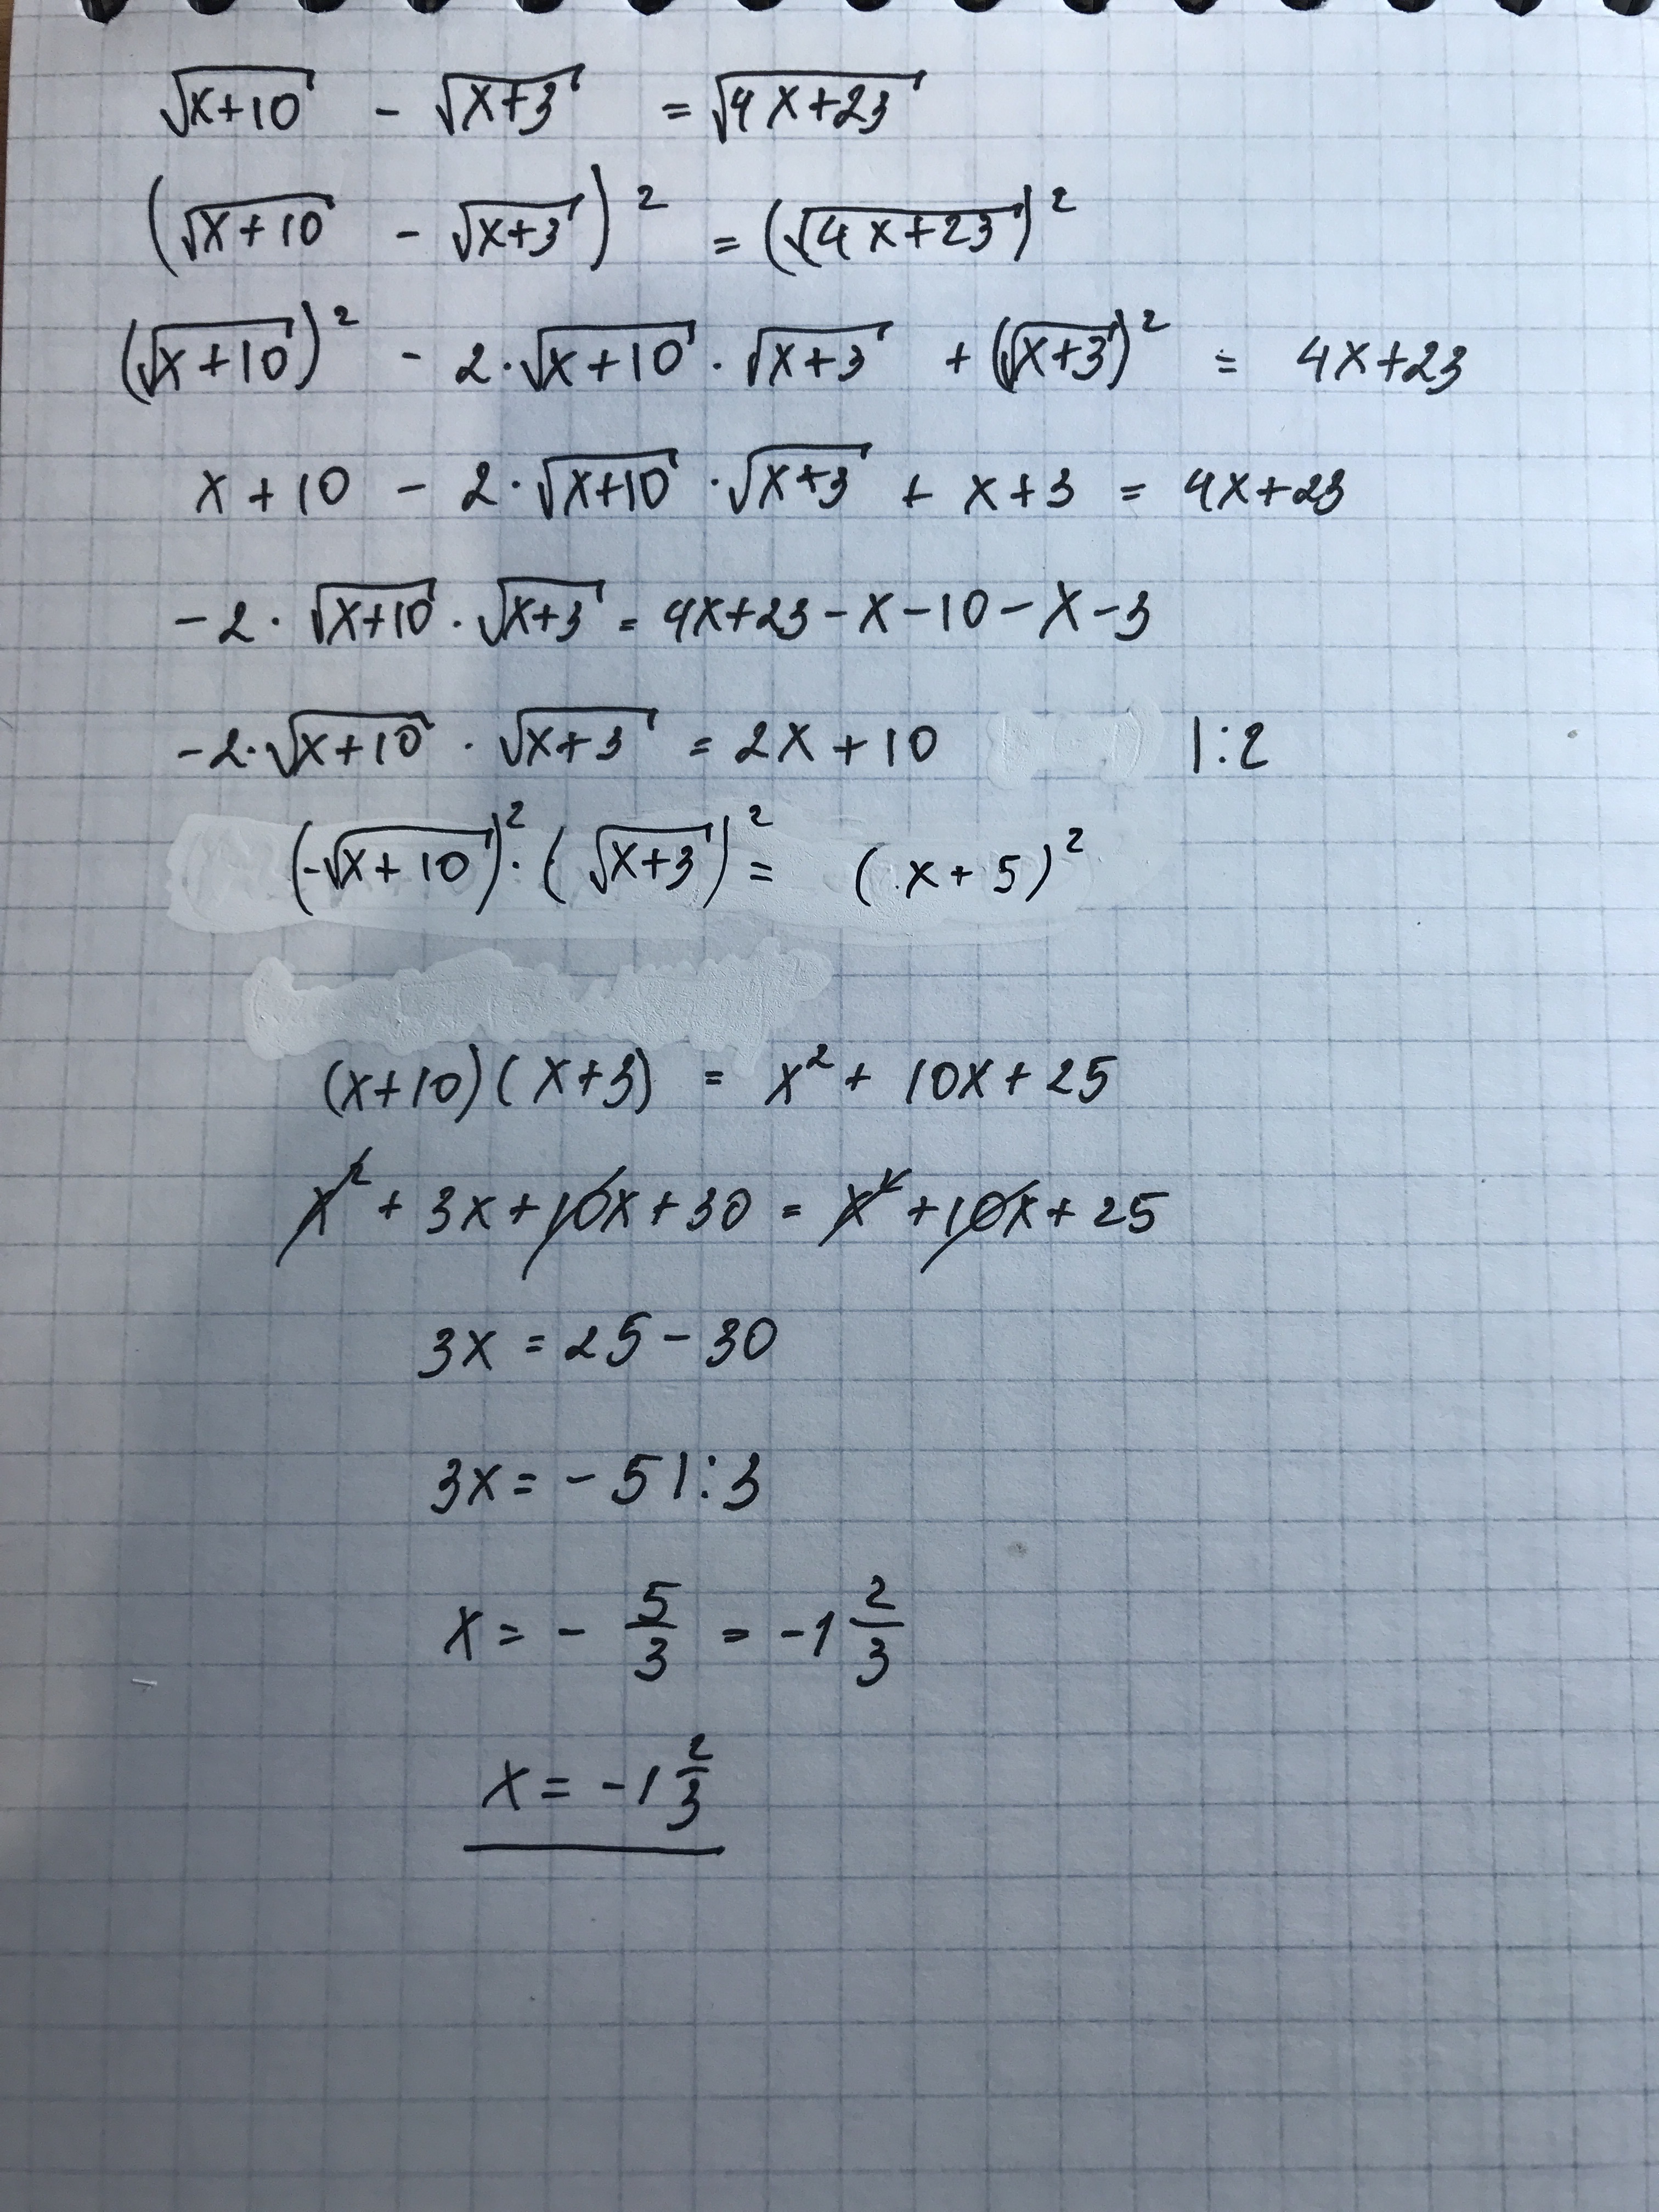 √(x+10) - √(x+3) = √(4x+23)
(√(x+10) - √(x+3))² = (√(4x+23))²
(√(x+10))² - 2·√(x+10)·√(x+3) + (√(x+3))² = 4x+23
x+10 - 2·√(x+10)·√(x+3) + x+3 = 4x+23
-2·√(x+10)·√(x+3) = 4x+23-x-10-x-3
-2·√(x+10)·√(x+3) = 2x+10 |:2
(-√(x+10))²·(√(x+3))² = (x+5)²
(x+10)(x+3) = x²+10x+25
x²+3x+10x+30 = x²+10x+25
3x = 25-30
3x = -5 |:3
x = -5/3 = -1 2/3
x = -1 2/3